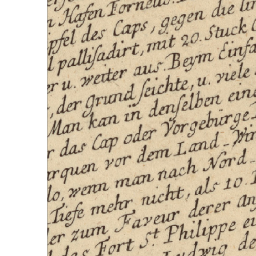 Hafen Torneus
pfel des Caps, gegen die lin
pallisadirt, mit 20. Stuck C
r u. weiter aus. Beym Einfa
, der grund seichte, u. viele
Man kan in denselben eine
das Cap oder Vorgebürge
rquen vor dem Land-Win
lo, wenn man nach Nord-
Tiefe mehr nicht, als 10.
er zum Faveur derer an
das Fort St. Philippe ei
Ludwig de